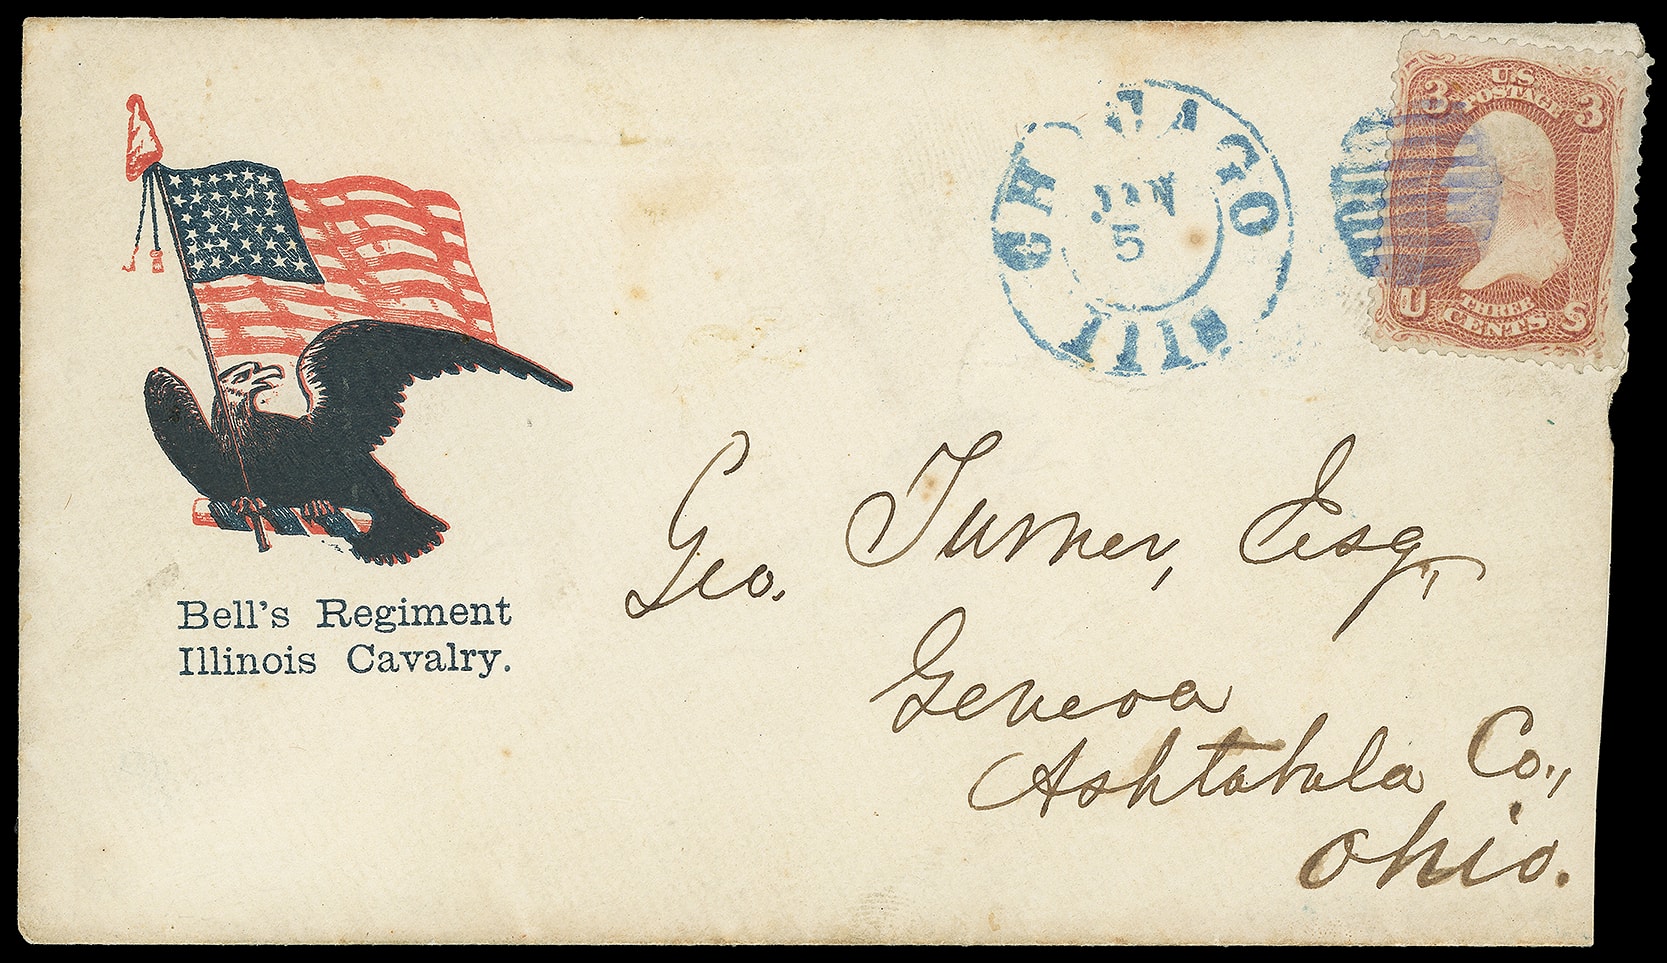 Bell's Regiment
Illinois Cavalry.
CHICAGO
JAN
5
ILL
3 U.S. 3
POSTAGE
U THREE S
CENTS
Geo. Turner, Esq.,
Geneva
Ashtabula Co.,
Ohio.